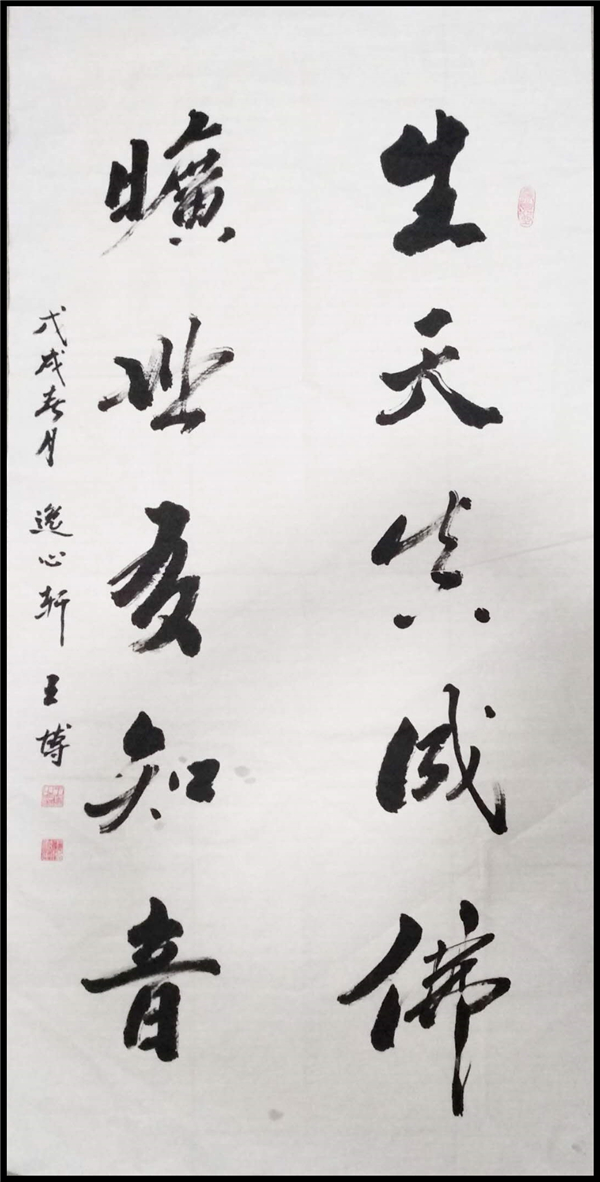 生天真成佛
曠世友知音
戊戌春月 逸心軒 王博